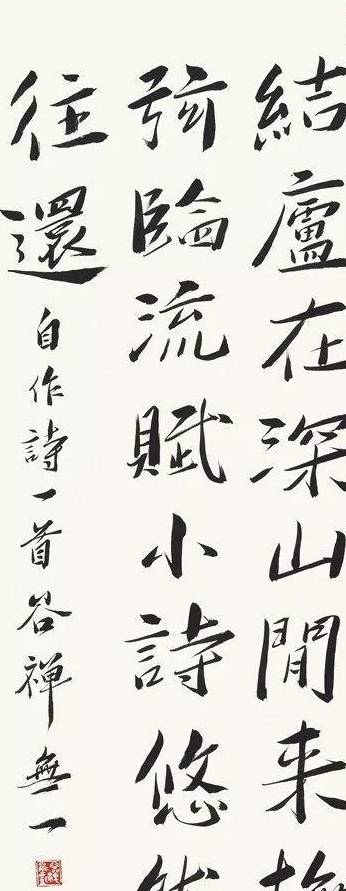 結廬在深山閒来
弦臨流賦小詩悠
往還
自作詩一首谷禪無一